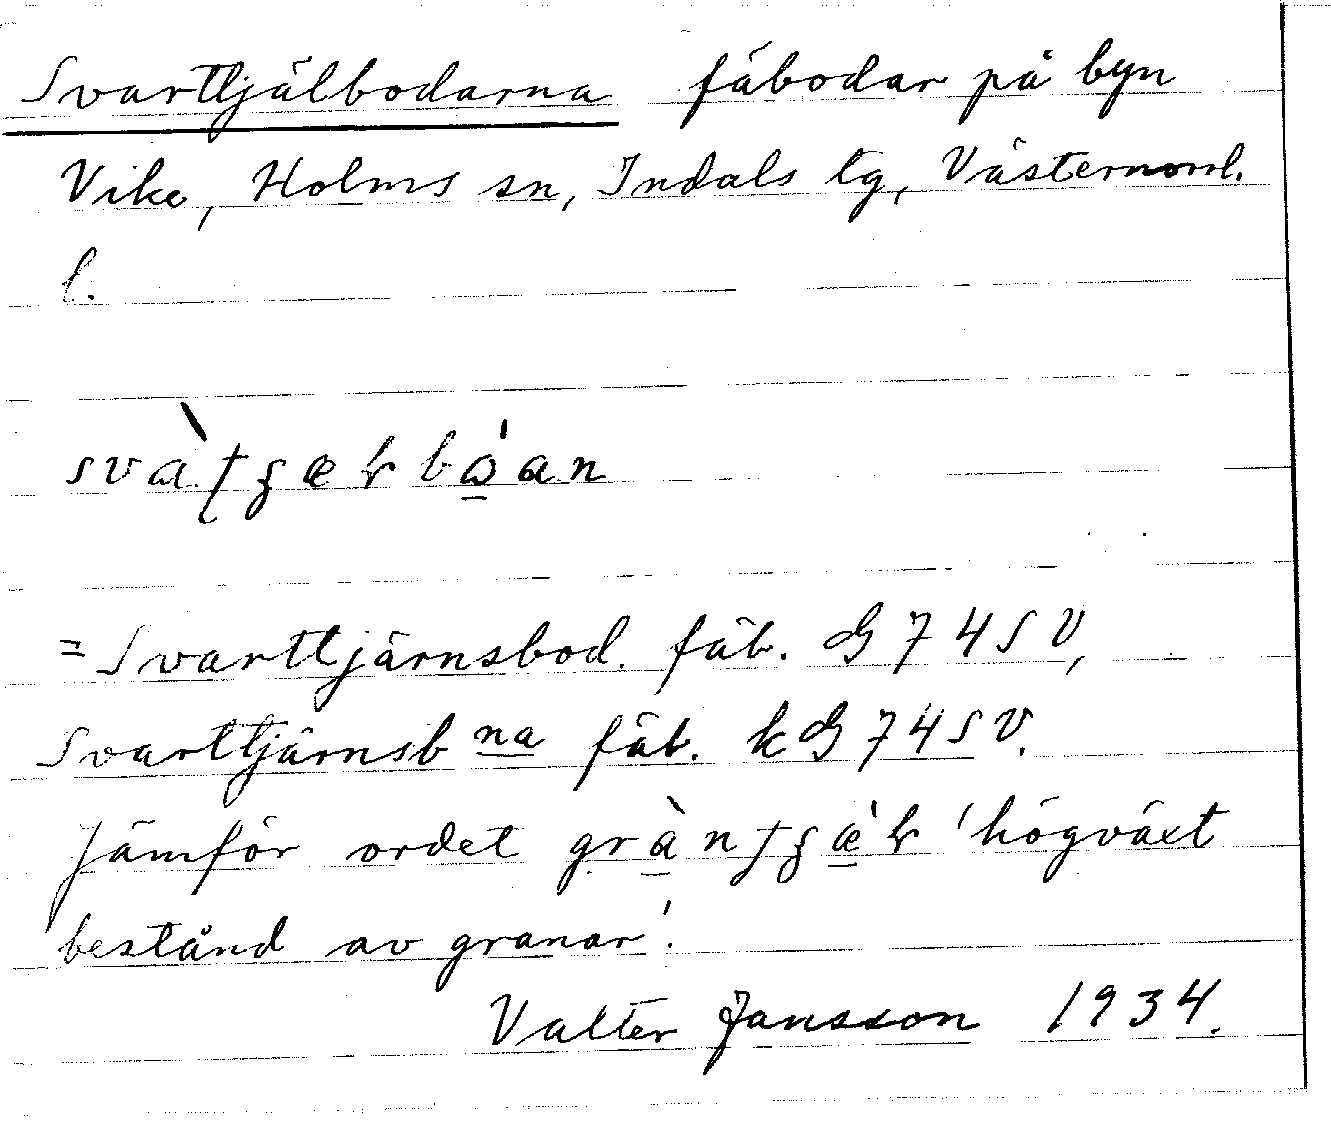 Svarttjälbodarna fäbodar på byn
Vike, Holms sn, Indals tg, Västernorrl.
l.
svàʈʂæɽbɷ́an
= Svarttjärnsbod. fäb. G 74 SV,
Svarttjärnsb na fäb. kG 74 SV.
Jämför ordet gràntʂǽɽ 'högväxt
bestånd av granar'.
Valter Jansson 1934.